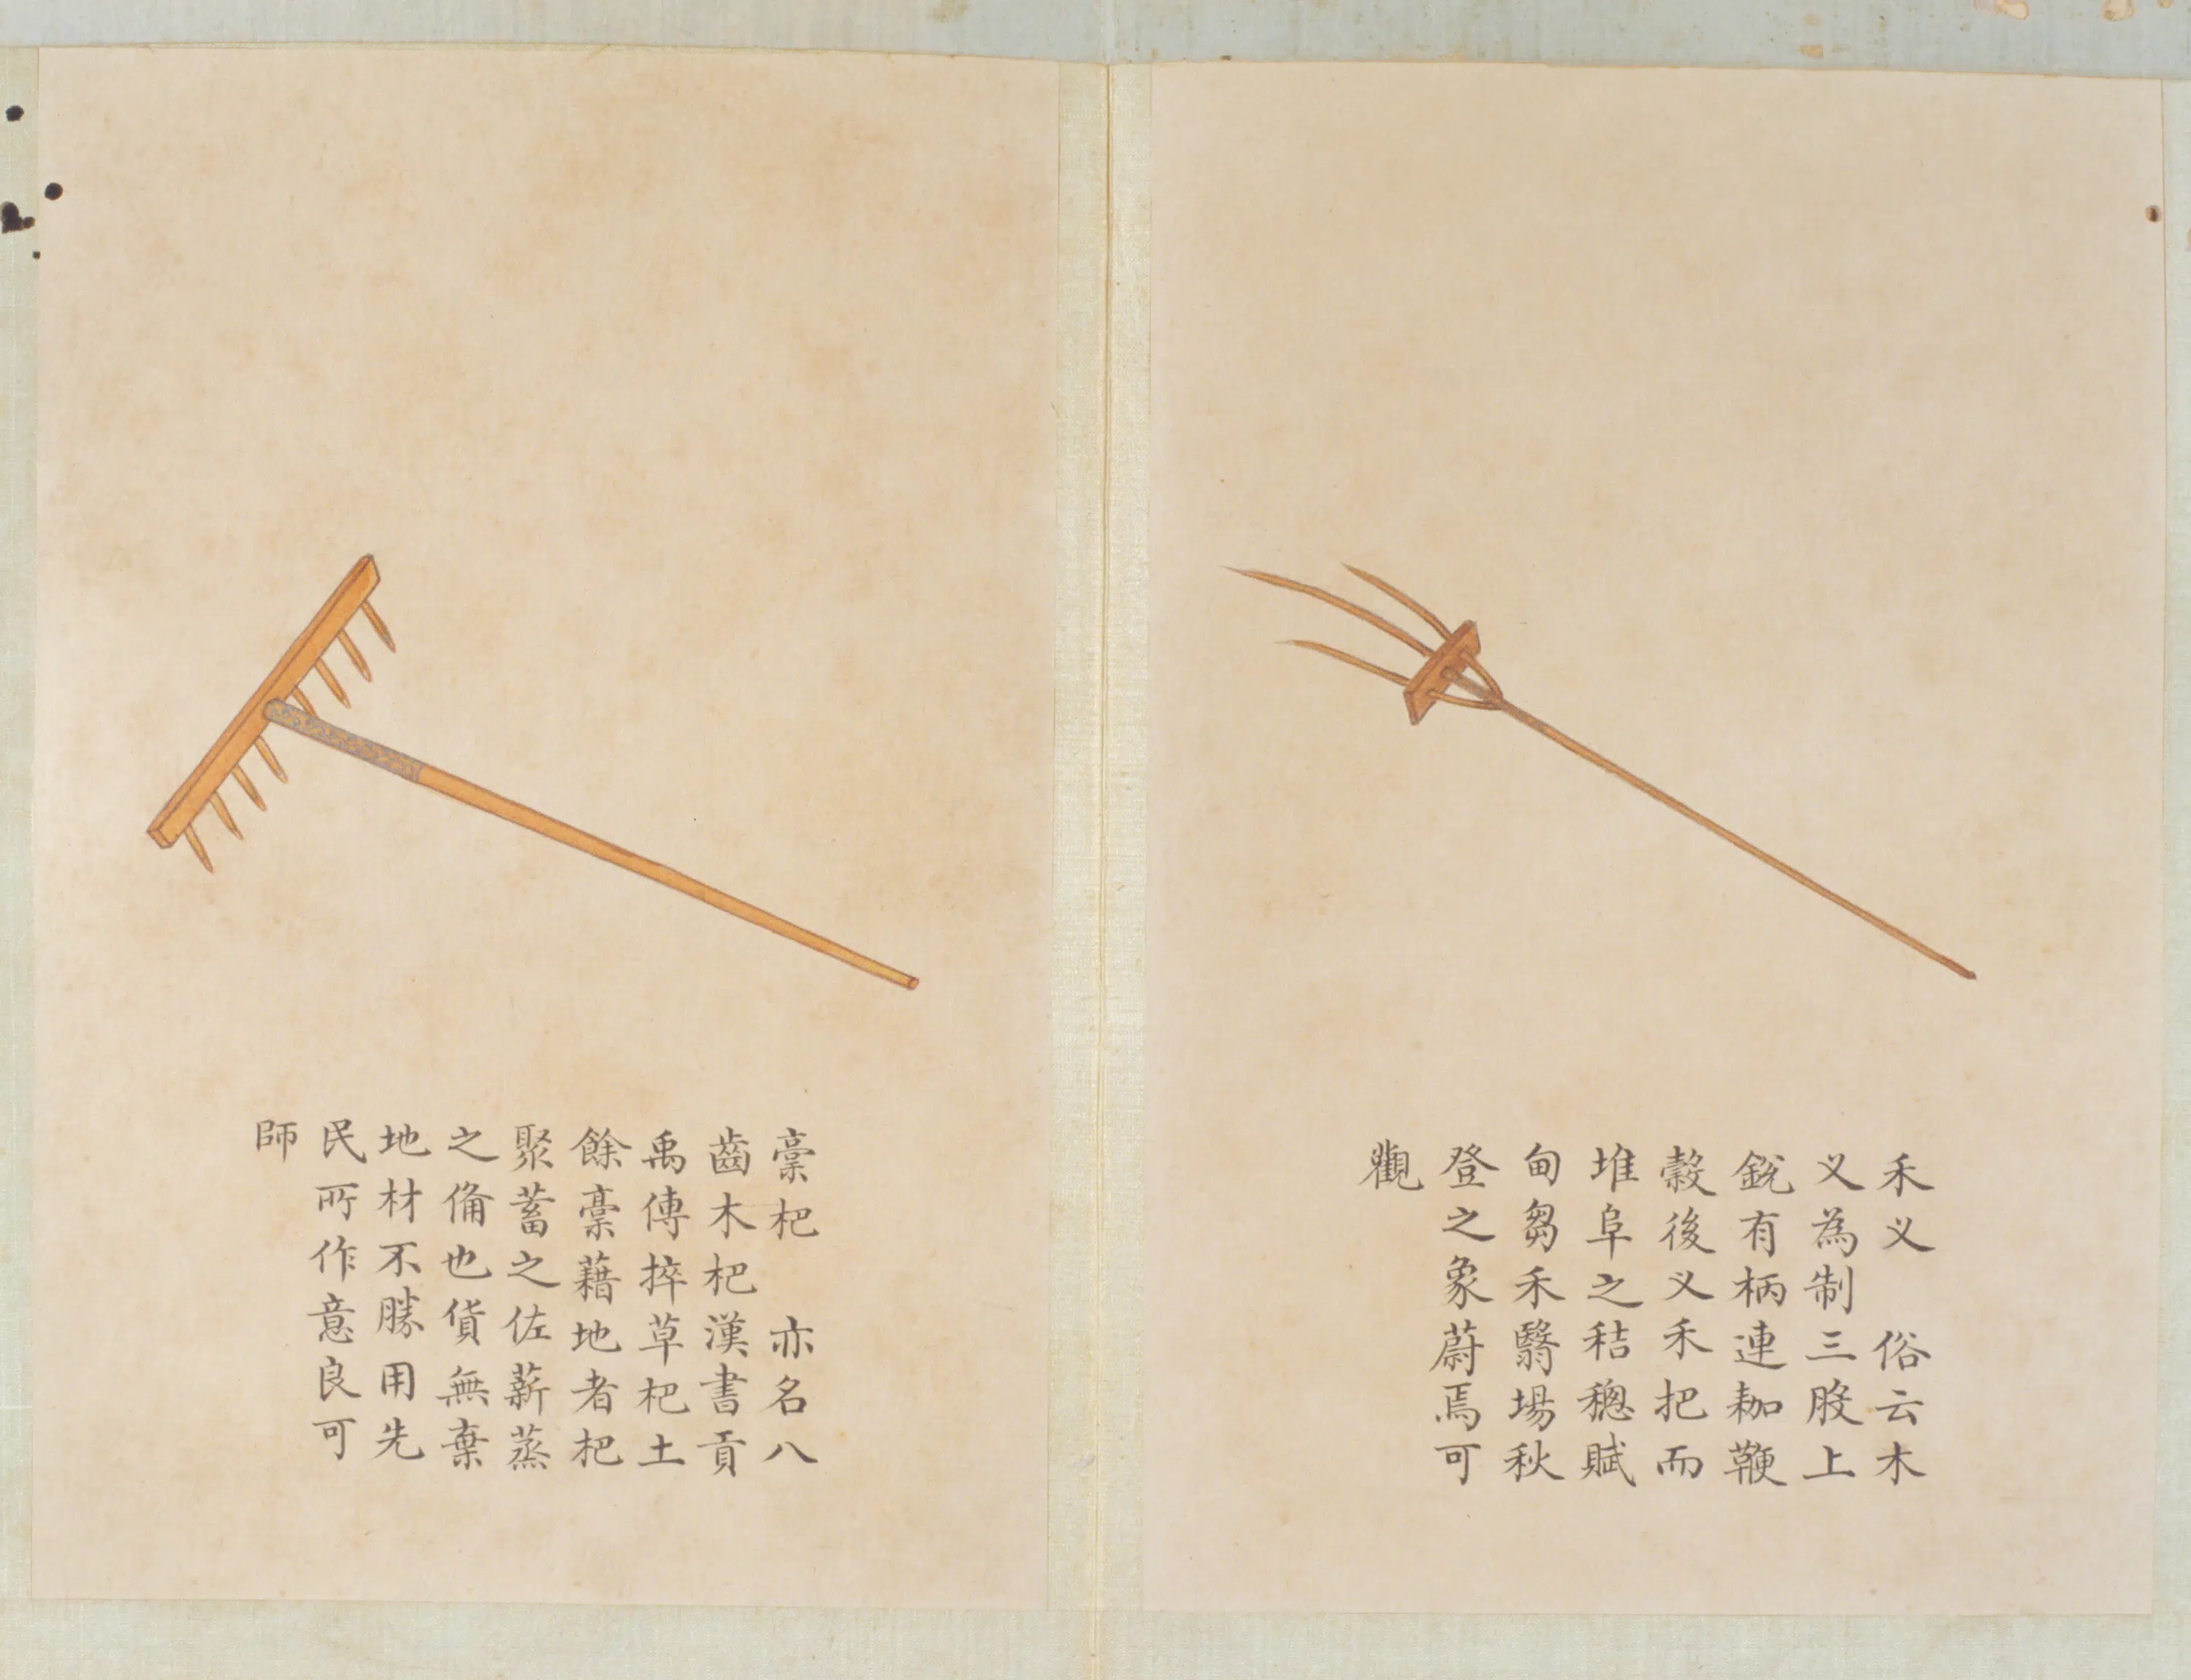 禾义　俗云木
义為制三股上
銳有柄連耞鞭
穀後义禾把而
堆阜之秸穗賦
甸芻禾翳場秋
登之象蔚焉可
觀
稾杷　亦名八
齒木杷漢書貢
禹傳捽草杷土
餘稾藉地者杷
聚蓄之佐薪蒸
之俻也貨無棄
地材不勝用先
民所作意良可
師